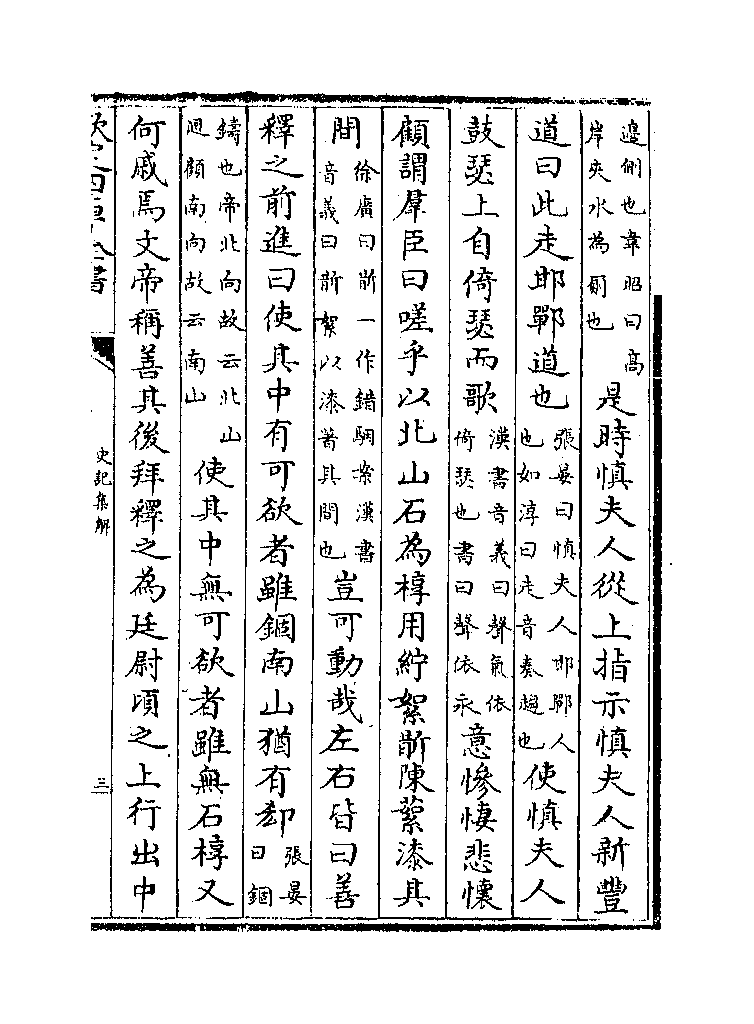 邉側也韋昭曰高
岸夾水為厠也
是時慎夫人從上指示慎夫人新豐
道曰此走邯鄲道也
張晏曰慎夫人邯鄲人
也如淳曰走音奏趨也
使慎夫人
鼓瑟上自倚瑟而歌
漢書音義曰聲氣依
倚瑟也書曰聲依永
意慘悽悲懷
顧謂羣臣曰嗟乎以北山石為椁用紵絮斮陳蘩漆其
間
徐廣曰斮一作錯駰案漢書
音義曰斮絮以漆著其間也
豈可動哉左右皆曰善
釋之前進曰使其中有可欲者雖錮南山猶有郄
張晏
曰錮
鑄也帝北向故云北山
迴顧南向故云南山
使其中無可欲者雖無石椁又
何戚焉文帝稱善其後拜釋之為廷尉頃之上行出中
欽定四庫全書
史記集解
三